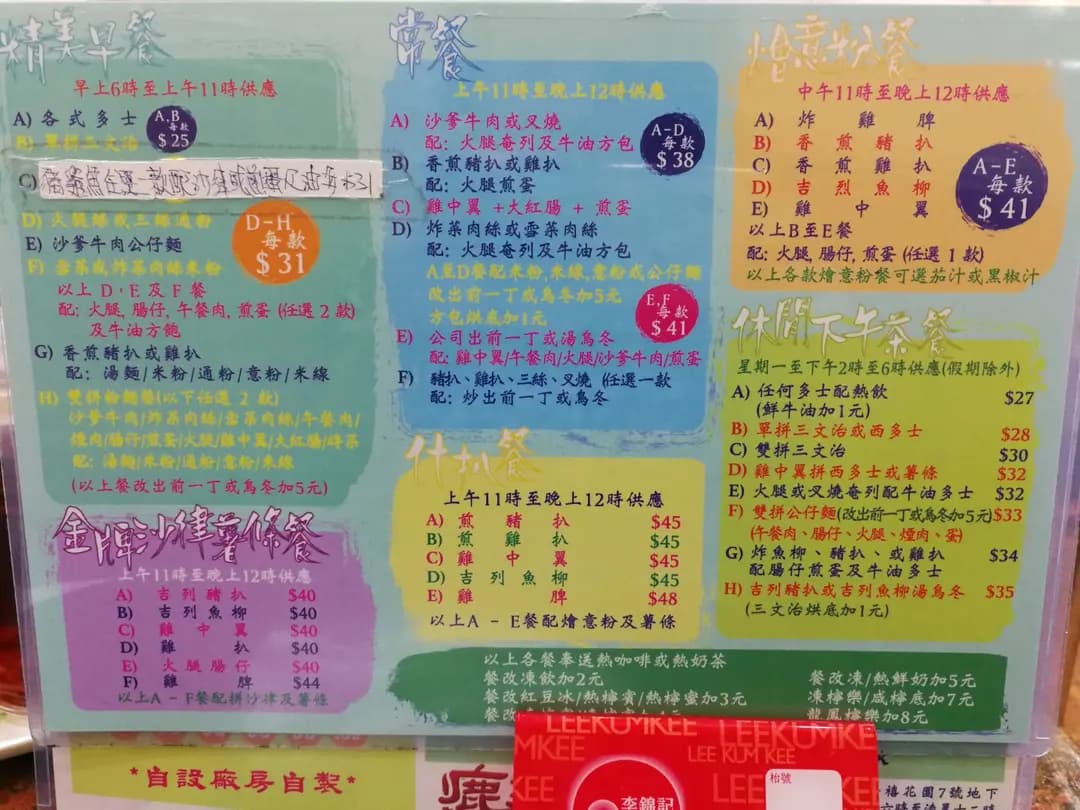 精美早餐
早上6時至上午11時供應
A) 各式多士
B) 單拼三文治
A,B
每款
$25
C)
D) 火腿絲或三絲通粉
E) 沙爹牛肉公仔麵
F) 雪菜或炸菜肉絲米粉
D-H
每款
$31
以上 D,E 及 F 餐
配: 火腿, 腸仔, 午餐肉, 煎蛋 (任選 2 款)
及牛油方飽
G) 香煎豬扒或雞扒
配: 湯麵/米粉/通粉/意粉/米線
H) 雙拼粉麵餐(以下任選 2 款)
沙爹牛肉/炸菜肉絲/雪菜肉絲/午餐肉/
煙肉/腸仔/煎蛋/火腿/雞中翼/大紅腸/時菜
配: 湯麵/米粉/通粉/意粉/米線
(以上餐改出前一丁或烏冬加5元)
金牌沙律薯條餐
上午11時至晚上12時供應
A) 吉列豬扒 $40
B) 吉列魚柳 $40
C) 雞中翼 $40
D) 雞扒 $40
E) 火腿腸仔 $40
F) 雞髀 $44
以上A - F餐配拼沙律及薯條
常餐
上午11時至晚上12時供應
A) 沙爹牛肉或叉燒
配: 火腿奄列及牛油方包
B) 香煎豬扒或雞扒
配: 火腿煎蛋
C) 雞中翼 +大紅腸 + 煎蛋
D) 炸菜肉絲或雪菜肉絲
配: 火腿奄列及牛油方包
A-D
每款
$38
A至D餐配米粉,米線,意粉或公仔麵
改出前一丁或烏冬加5元
方包烘底加1元
E) 公司出前一丁或湯烏冬
配: 雞中翼/午餐肉/火腿/沙爹牛肉/煎蛋
F) 豬扒、雞扒、三絲、叉燒 (任選一款
配: 炒出前一丁或烏冬
E,F
每款
$41
什扒餐
上午11時至晚上12時供應
A) 煎豬扒 $45
B) 煎雞扒 $45
C) 雞中翼 $45
D) 吉列魚柳 $45
E) 雞髀 $48
以上A - E餐配燴意粉及薯條
燴意粉餐
中午11時至晚上12時供應
A) 炸雞髀
B) 香煎豬扒
C) 香煎雞扒
D) 吉烈魚柳
E) 雞中翼
A-E
每款
$41
以上B至E餐
配: 火腿, 腸仔, 煎蛋 (任選 1 款)
以上各款燴意粉餐可選茄汁或黑椒汁
休閒下午茶餐
星期一至下午2時至6時供應(假期除外)
A) 任何多士配熱飲 $27
(鮮牛油加1元)
B) 單拼三文治或西多士 $28
C) 雙拼三文治 $30
D) 雞中翼拼西多士或薯條 $32
E) 火腿或叉燒奄列配牛油多士 $32
F) 雙拼公仔麵(改出前一丁或烏冬加5元) $33
(午餐肉、腸仔、火腿、煙肉、蛋)
G) 炸魚柳、豬扒、或雞扒 $34
配腸仔煎蛋及牛油多士
H) 吉列豬扒或吉列魚柳湯烏冬 $35
(三文治烘底加1元)
以上各餐奉送熱咖啡或熱奶茶
餐改凍飲加2元
餐改紅豆冰/熱檸賓/熱檸蜜加3元
餐改凍/熱鮮奶加5元
凍檸樂/咸檸底加7元
龍鳳檸樂加8元
LEEKUMKEE LEEKUMKEE
MKEE LEE KUM KEE
李錦記
枱號
*自設廠房自製*
禧花園7號地下